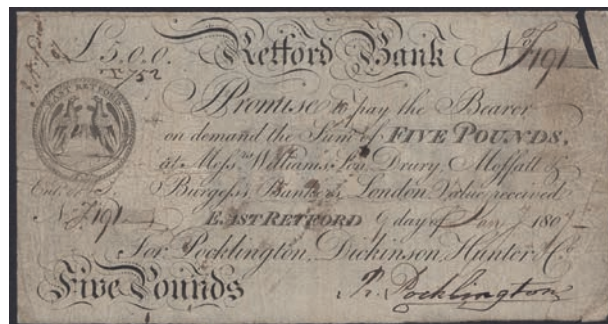 £5.0.0. Retford Bank No J191
EAST RETFORD
I Promise to pay the Bearer
on demand the Sum of FIVE POUNDS,
at Messrs Williams Son Drury, Moffatt &
Burgess Bankers, London Value received
No J191 EAST RETFORD 9 day of 180
For Pocklington, Dickinson, Hunter & Co
Five Pounds R. Pocklington